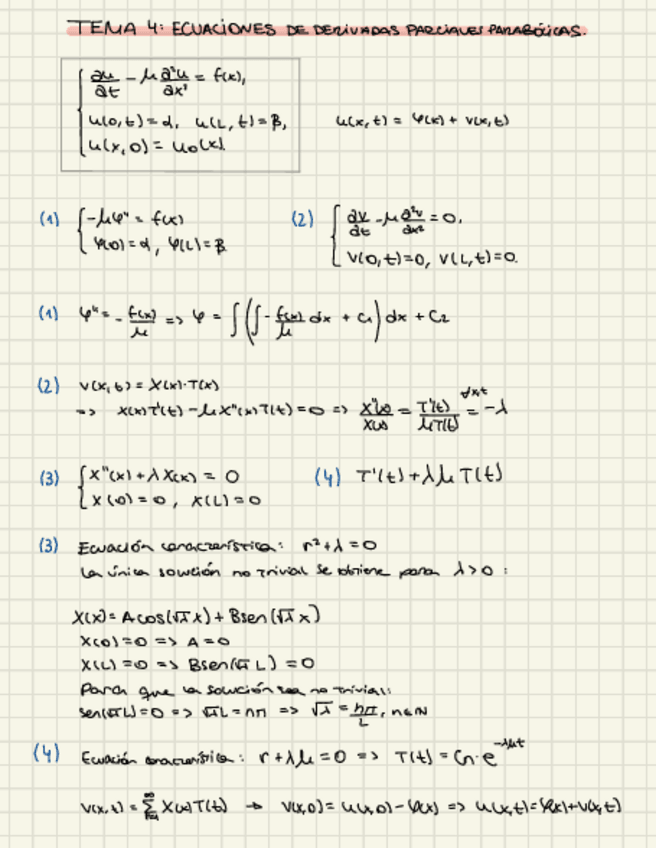 TEMA 4: ECUACIONES DE DERIVADAS PARCIALES PARABÓLICAS.
{ ∂u/∂t - μ ∂²u/∂x² = f(x),
u(0,t) = α, u(L,t) = β,
u(x,0) = u₀(x).
u(x,t) = φ(x) + v(x,t)
(1) { -μφ'' = f(x)
φ(0) = α, φ(L) = β
(2) { ∂v/∂t - μ ∂²v/∂x² = 0,
v(0,t)=0, v(L,t)=0.
(1) φ'' = - f(x)/μ => φ = ∫ ( ∫ - f(x)/μ dx + C₁ ) dx + C₂
(2) v(x,t) = X(x)·T(x)
=> X(x)T'(t) - μX''(x)T(t) = 0 => X''(x)/X(x) = T'(t)/μT(t) = -λ
(3) { X''(x) + λX(x) = 0
X(0) = 0, X(L) = 0
(4) T'(t) + λμT(t)
(3) Ecuación característica: r² + λ = 0
La única solución no trivial se obtiene para λ > 0:
X(x) = A cos(√λ x) + B sen(√λ x)
X(0) = 0 => A = 0
X(L) = 0 => B sen(√λ L) = 0
Para que la solución sea no trivial:
sen(√λ L) = 0 => √λ L = nπ => √λ = nπ/L, n∈N
(4) Ecuación característica: r + λμ = 0 => T(t) = Cn·e^(-λμt)
v(x,t) = ∑ X(x)T(t) → v(x,0) = u(x,0) - φ(x) => u(x,t) = φ(x) + v(x,t)